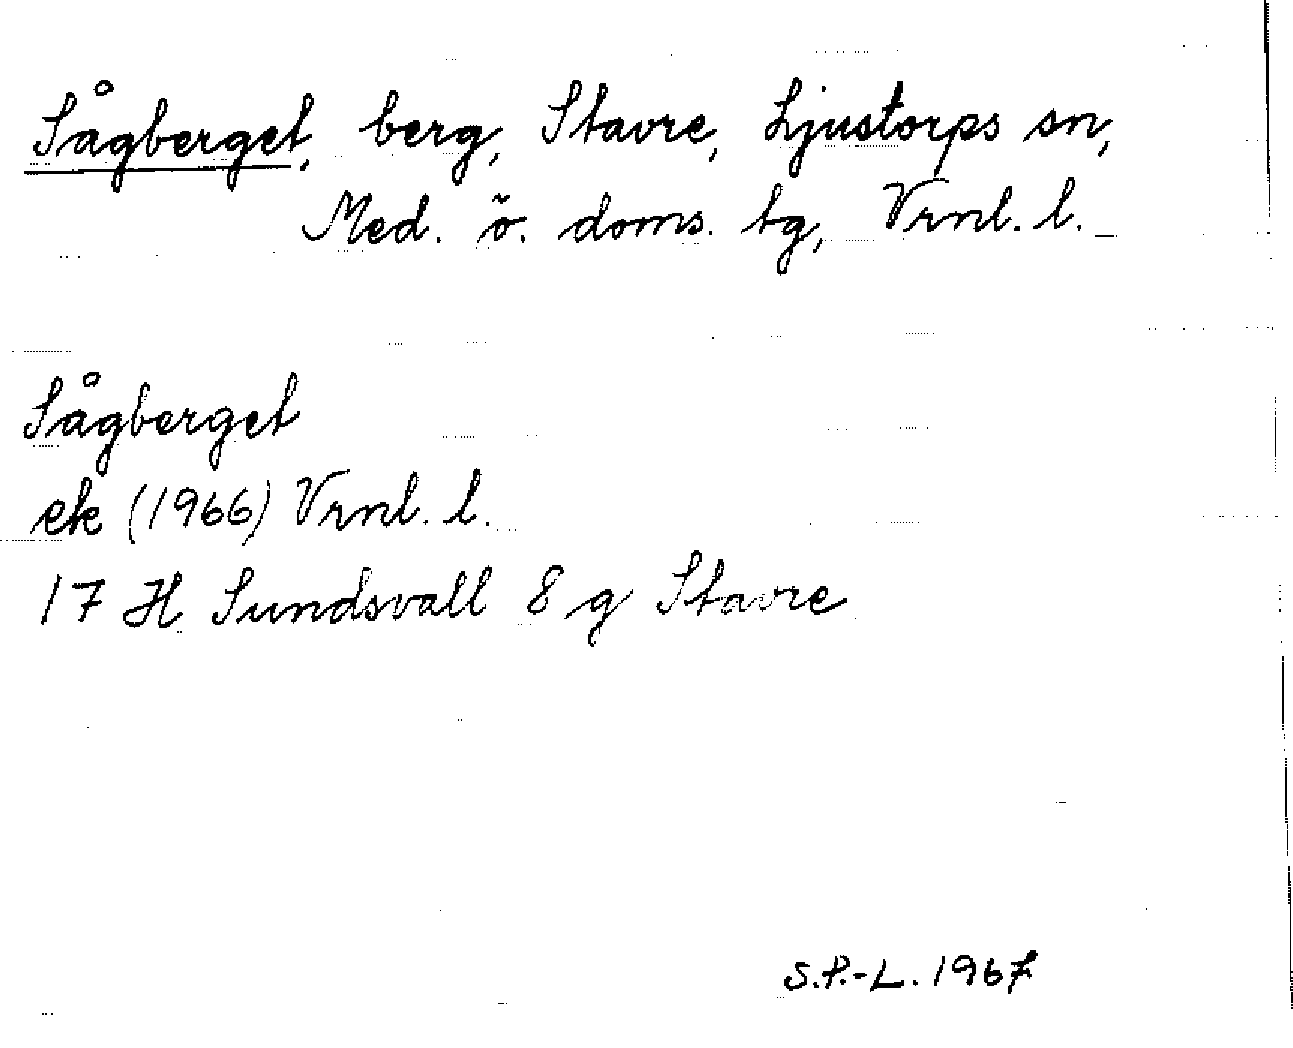 Sågberget, berg, Stavre, Ljustorps sn,
Med. ö. doms. tg, Vrnl. l.
Sågberget
ek (1966) Vrnl. l.
17 H Sundsvall 8 g Stavre
S.P.-L. 1967